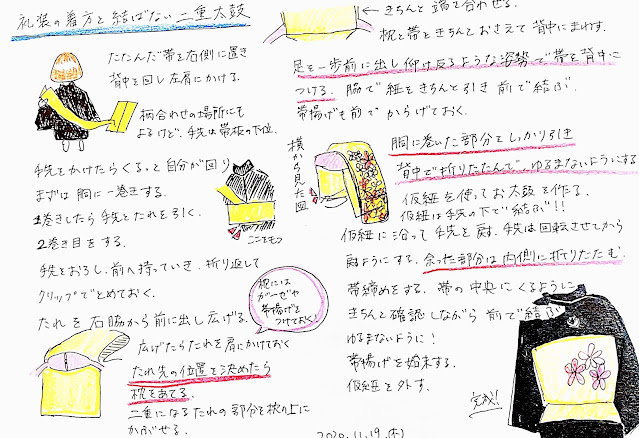 礼装の着方と結ばない二重太鼓
たたんだ帯を右側に置き
背中を回し左肩にかける。
柄合わせの場所にも
よるけど、手先は帯板の下位。
手先をかけたらくるっと自分が回り
まずは胴に一巻きする。
1巻きしたら手先とたれを引く。
2巻き目をする。
ここをもつ
手先をおろし、前へ持っていき、折り返して
クリップでとめておく。
たれを右脇から前に出し広げる。
枕には
ガーゼや
帯揚げを
つけておく!
広げたらたれを肩にかけておく
たれ先の位置を決めたら
枕をあてる。
二重になるたれの部分を枕の上に
かぶせる。
きちんと端を合わせる。
枕と帯をきちんとおさえて背中にまわす。
足を一歩前に出し仰け反るような姿勢で帯を背中に
つける。脇で紐をきちんと引き前で結ぶ。
帯揚げも前でからげておく。
横から見た図
胴に巻いた部分をしっかり引き
背中で折りたたんで、ゆるまないようにする
仮紐を使ってお太鼓を作る。
仮紐は手先の下で結ぶ!!
仮紐に沿って手先を戻す。手先は回転させてから
戻すようにする。余った部分は内側に折りたたむ。
帯締めをする。帯の中央にくるように
きちんと確認しながら前で結ぶ
ゆるまないように!
帯揚げを始末する。
仮紐を外す。
完成!
2020.11.19.(木)